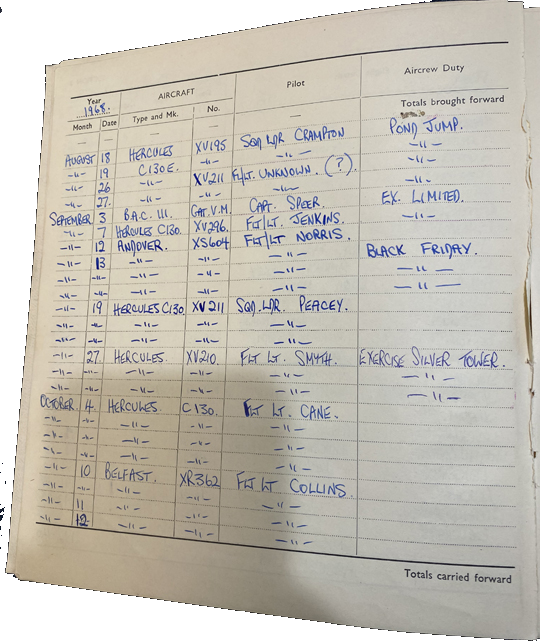 Year 1968. AIRCRAFT Pilot Aircrew Duty
Month Date Type and Mk. No. Totals brought forward
— — — — —
AUGUST 18 HERCULES XV195 SQD LDR CRAMPTON POND JUMP.
-"- 19 C130E. -"- -"- -"-
-"- 26 -"- XV211 FLT/LT. UNKNOWN. (?) -"-
-"- 27. -"- -"- -"- -"-
SEPTEMBER 3 B.A.C. 111. GAT.V.M. CAPT. SPEER. EX. LIMITED.
-"- 7 HERCULES C130. XV296. FLT/LT. JENKINS. -"-
-"- 12 ANDOVER. XS604 FLT/LT NORRIS.
-"- 13 -"- -"- -"- BLACK FRIDAY.
-"- -"- -"- -"- -"- -"-
-"- -"- -"- -"- -"- -"-
-"- 19 HERCULES C130 XV211 SQD. LDR. PEACEY.
-"- -"- -"- -"- -"-
-"- -"- -"- -"- -"-
-"- 27. HERCULES. XV210. FLT LT. SMYTH. EXERCISE SILVER TOWER.
-"- -"- -"- -"- -"- -"-
-"- -"- -"- -"- -"- -"-
OCTOBER. 4. HERCULES. C130. FLT LT. CANE.
-"- -"- -"- -"- -"-
-"- -"- -"- -"- -"-
-"- -"- -"- -"- -"-
-"- 10 BELFAST. XR362 FLT LT COLLINS.
-"- -"- -"- -"- -"-
-"- 11 -"- -"- -"-
-"- 12 -"- -"- -"-
Totals carried forward